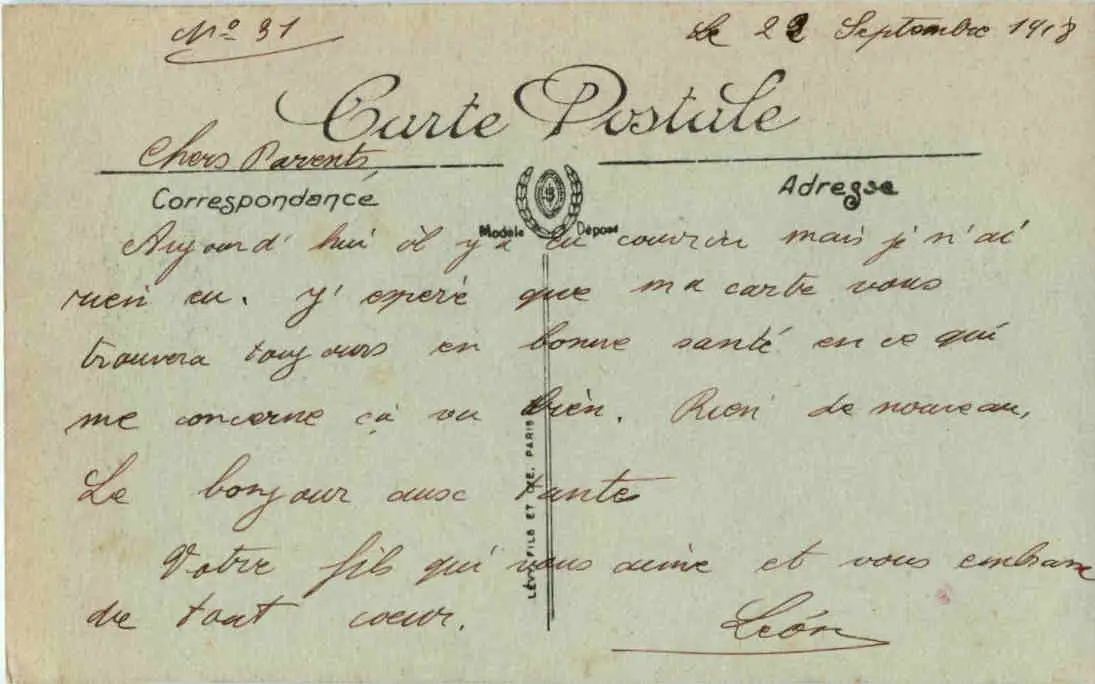 No 31
Le 22 Septembre 1918
Carte Postale
Chers Parents,
Correspondance
Adresse
Modèle Déposé
Aujourd'hui il y a eu courrier mais je n'ai
rien eu. J'espère que ma carte vous
trouvera toujours en bonne santé en ce qui
me concerne ça va bien. Rien de nouveau.
Le bonjour aux tante
Votre fils qui vous aime et vous embrasse
de tout coeur.
Léon
LÉVY FILS ET CIE, PARIS